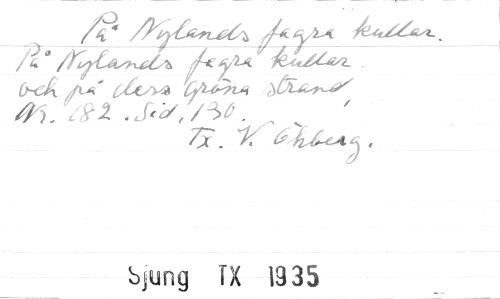 På Nylands fagra kullar.
På Nylands fagra kullar
och på dess gröna strand,
Nr. 182. Sid. 130.
Tx. V. Öhberg.
Sjung TX 1935